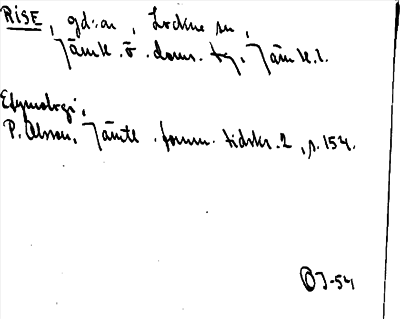 RISE, gd:ar, Lockne sn,
Jämtl. ö. doms. tg, Jämtl. l.
Etymologi,
P. Olsson, Jämtl. fornm. tidskr. 2, s. 154.
OJ-54